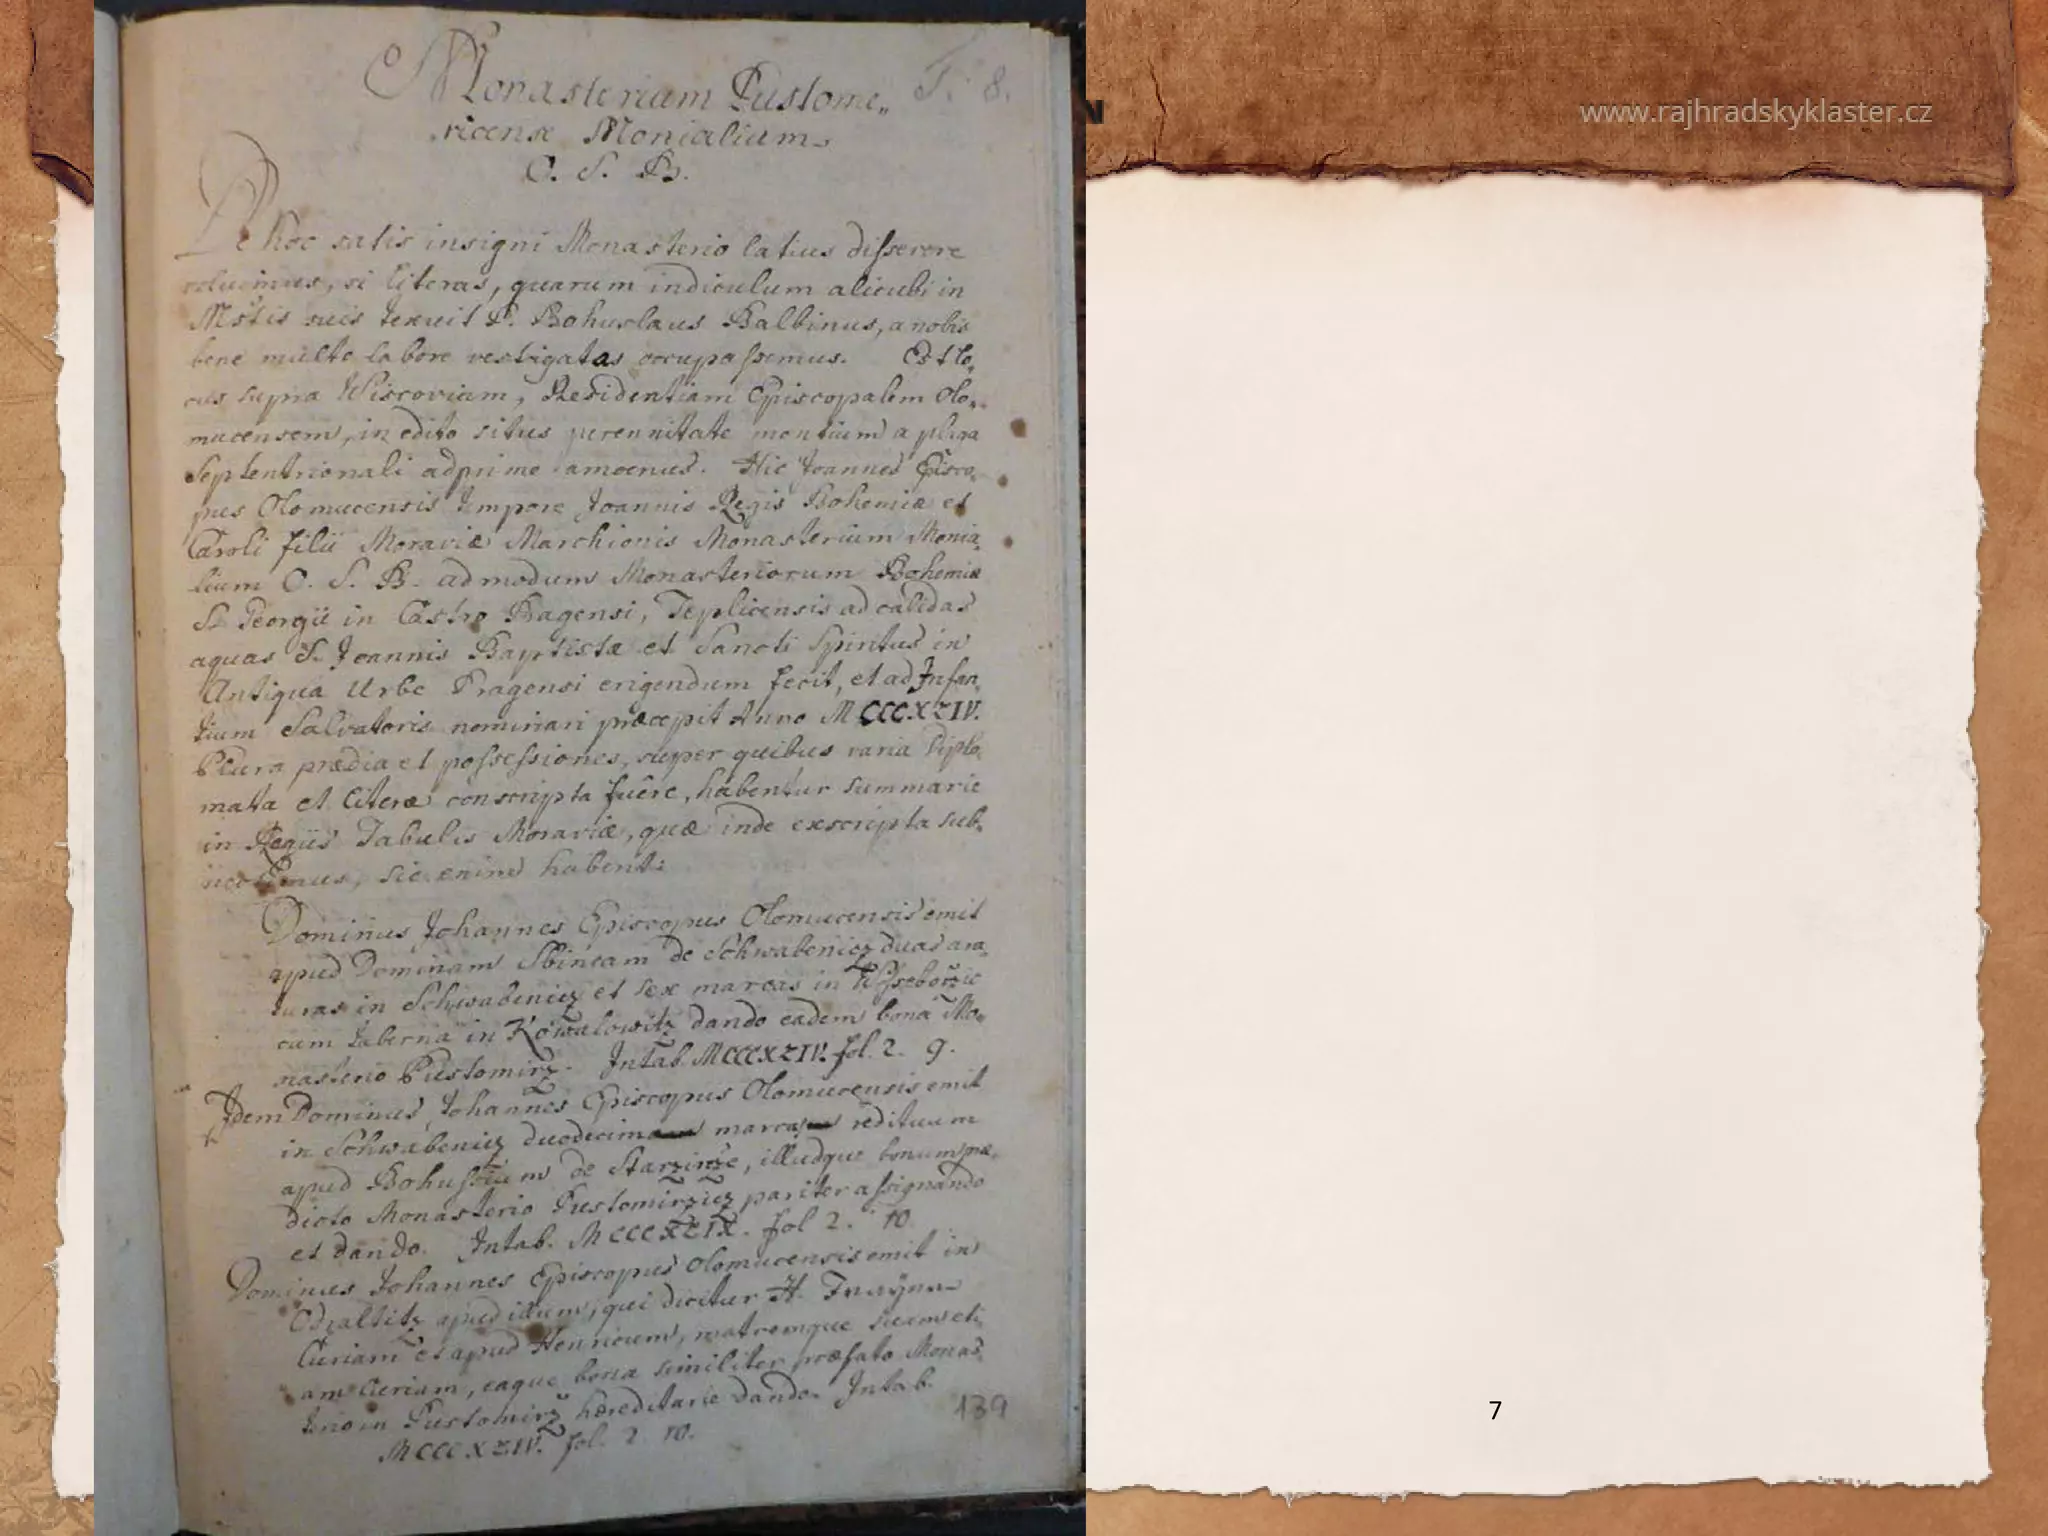 Monasterium Pustome„
ricense Monialium.
O. S. B.
T. 8.
De hoc satis insigni Monasterio latius disserere
voluimus, si literas, quarum indiculum alicubi in
Mstis suis texuit P. Bohuslaus Balbinus, a nobis
bene multo labore vestigatas occupassemus. Est lo„
cus supra Wiscoviam, Residentiam Episcopalem Olo„
mucensem, in edito situs perennitate montium a plaga
Septentrionali adprime amoenus. Hic Joannes Episco„
pus Olomucensis tempore Joannis Regis Bohemiæ et
Caroli filii Moraviæ Marchionis Monasterium Monia„
lium O. S. B. ad modum Monasteriorum Bohemiæ
S. Georgii in Castro Pragensi, Teplicensis ad calidas
aquas S. Joannis Baptistæ et Sancti Spiritus in
Antiqua Urbe Pragensi erigendum fecit, et ad Infan„
tium Salvatoris nominari præcepit Anno MCCCXZIV.
Plura prædia et possessiones, super quibus varia Diplo„
mata et literæ conscripta fuêre, habentur summarie
in Regiis Tabulis Moraviæ, quæ inde exscripta sub„
sic enim habent:
Dominus Johannes Episcopus Olomucensis emit
apud Dominam Sbincam de Schwabenicz duas ara„
turas in Schwabenicz et sex marcas in Wsseboržic
cum taberna in Kowalowitz dando eadem bona Mo„
nasterio Pustomirz. Intab. MCCCXZIV. fol. 2. 9.
Idem Dominus Johannes Episcopus Olomucensis emit
in Schwabenicz duodecim marcas redituum
apud Bohussium de Starzirže, illudque bonum præ„
dicto Monasterio Pustomirzicz pariter assignando
et dando. Intab. MCCCXZIX. fol 2. 10.
Dominus Johannes Episcopus Olomucensis emit in
Odzaltitz apud illum, qui dicitur H.
Curiam et apud Henricum, matremque suam eti„
am Curiam, eaque bona similiter præfato Monas„
terio in Pustomirž hæreditarie dando. Intab.
MCCCXZIV. fol. 2. 10.
139
N
www.rajhradskyklaster.cz
7